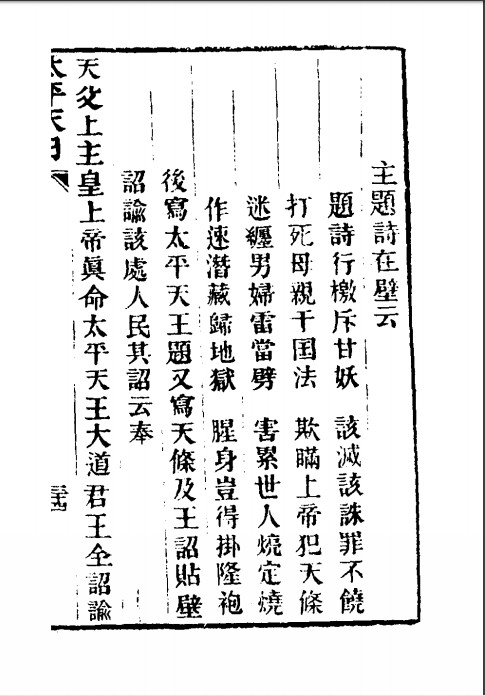 主題詩在壁云
題詩行檄斥甘妖　該滅該誅罪不饒
打死母親干囯法　欺瞞上帝犯天條
迷纏男婦雷當劈　害累世人燒定燒
作速潛藏歸地獄　腥身豈得掛隆袍
後寫太平天王題又寫天條及王詔貼壁
詔諭該處人民其詔云奉
天父上主皇上帝眞命太平天王大道君王全詔諭
太平天日